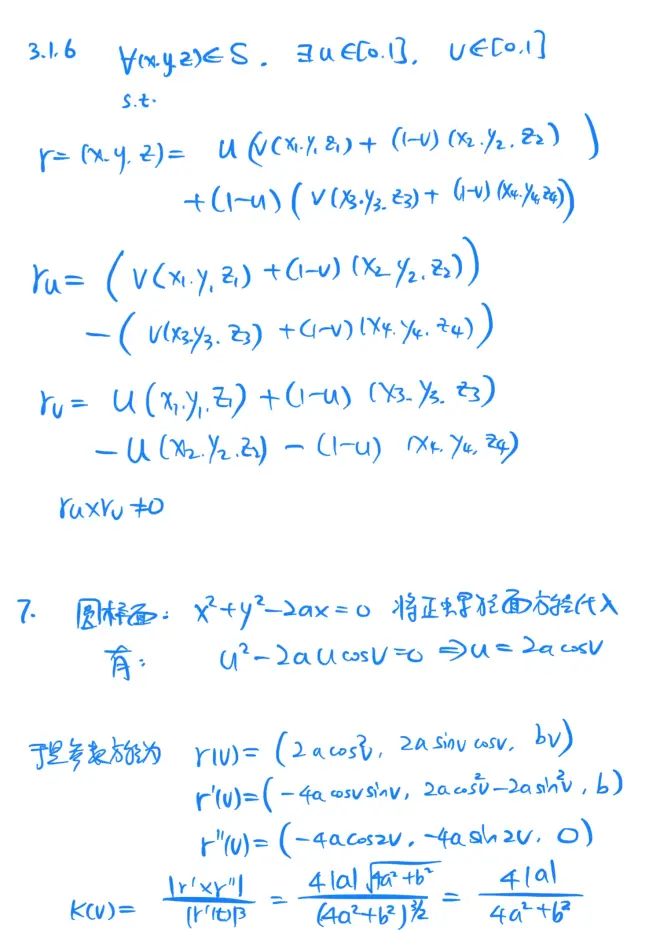 3.1.6 ∀(x.y.z)∈S. ∃u∈[0.1]. v∈[0,1]
s.t.
r=(x.y.z)= u(v(x₁.y₁.z₁)+(1-v)(x₂.y₂.z₂))
+(1-u)(v(x₃.y₃.z₃)+(1-v)(x₄.y₄.z₄))
rᵤ=(v(x₁.y₁.z₁)+(1-v)(x₂.y₂.z₂))
-(v(x₃.y₃.z₃)+(1-v)(x₄.y₄.z₄))
rᵥ= u(x₁.y₁.z₁)+(1-u)(x₃.y₃.z₃)
-u(x₂.y₂.z₂)-(1-u) (x₄.y₄.z₄)
rᵤ×rᵥ≠0
7. 圆柱面: x²+y²-2ax=0 将正螺旋面方程代入
有: u²-2aucosv=0 ⇒u=2acosv
于是参数方程为 r(v)=(2acos²v, 2asinvcosv, bv)
r'(v)=(-4acosvsinv, 2acos²v-2asin²v, b)
r''(v)=(-4acos2v, -4asin2v, 0)
K(v)= |r'×r''| / |r'(t)|³ = 4|a|√(4a²+b²) / (4a²+b²)^(3/2) = 4|a| / (4a²+b²)